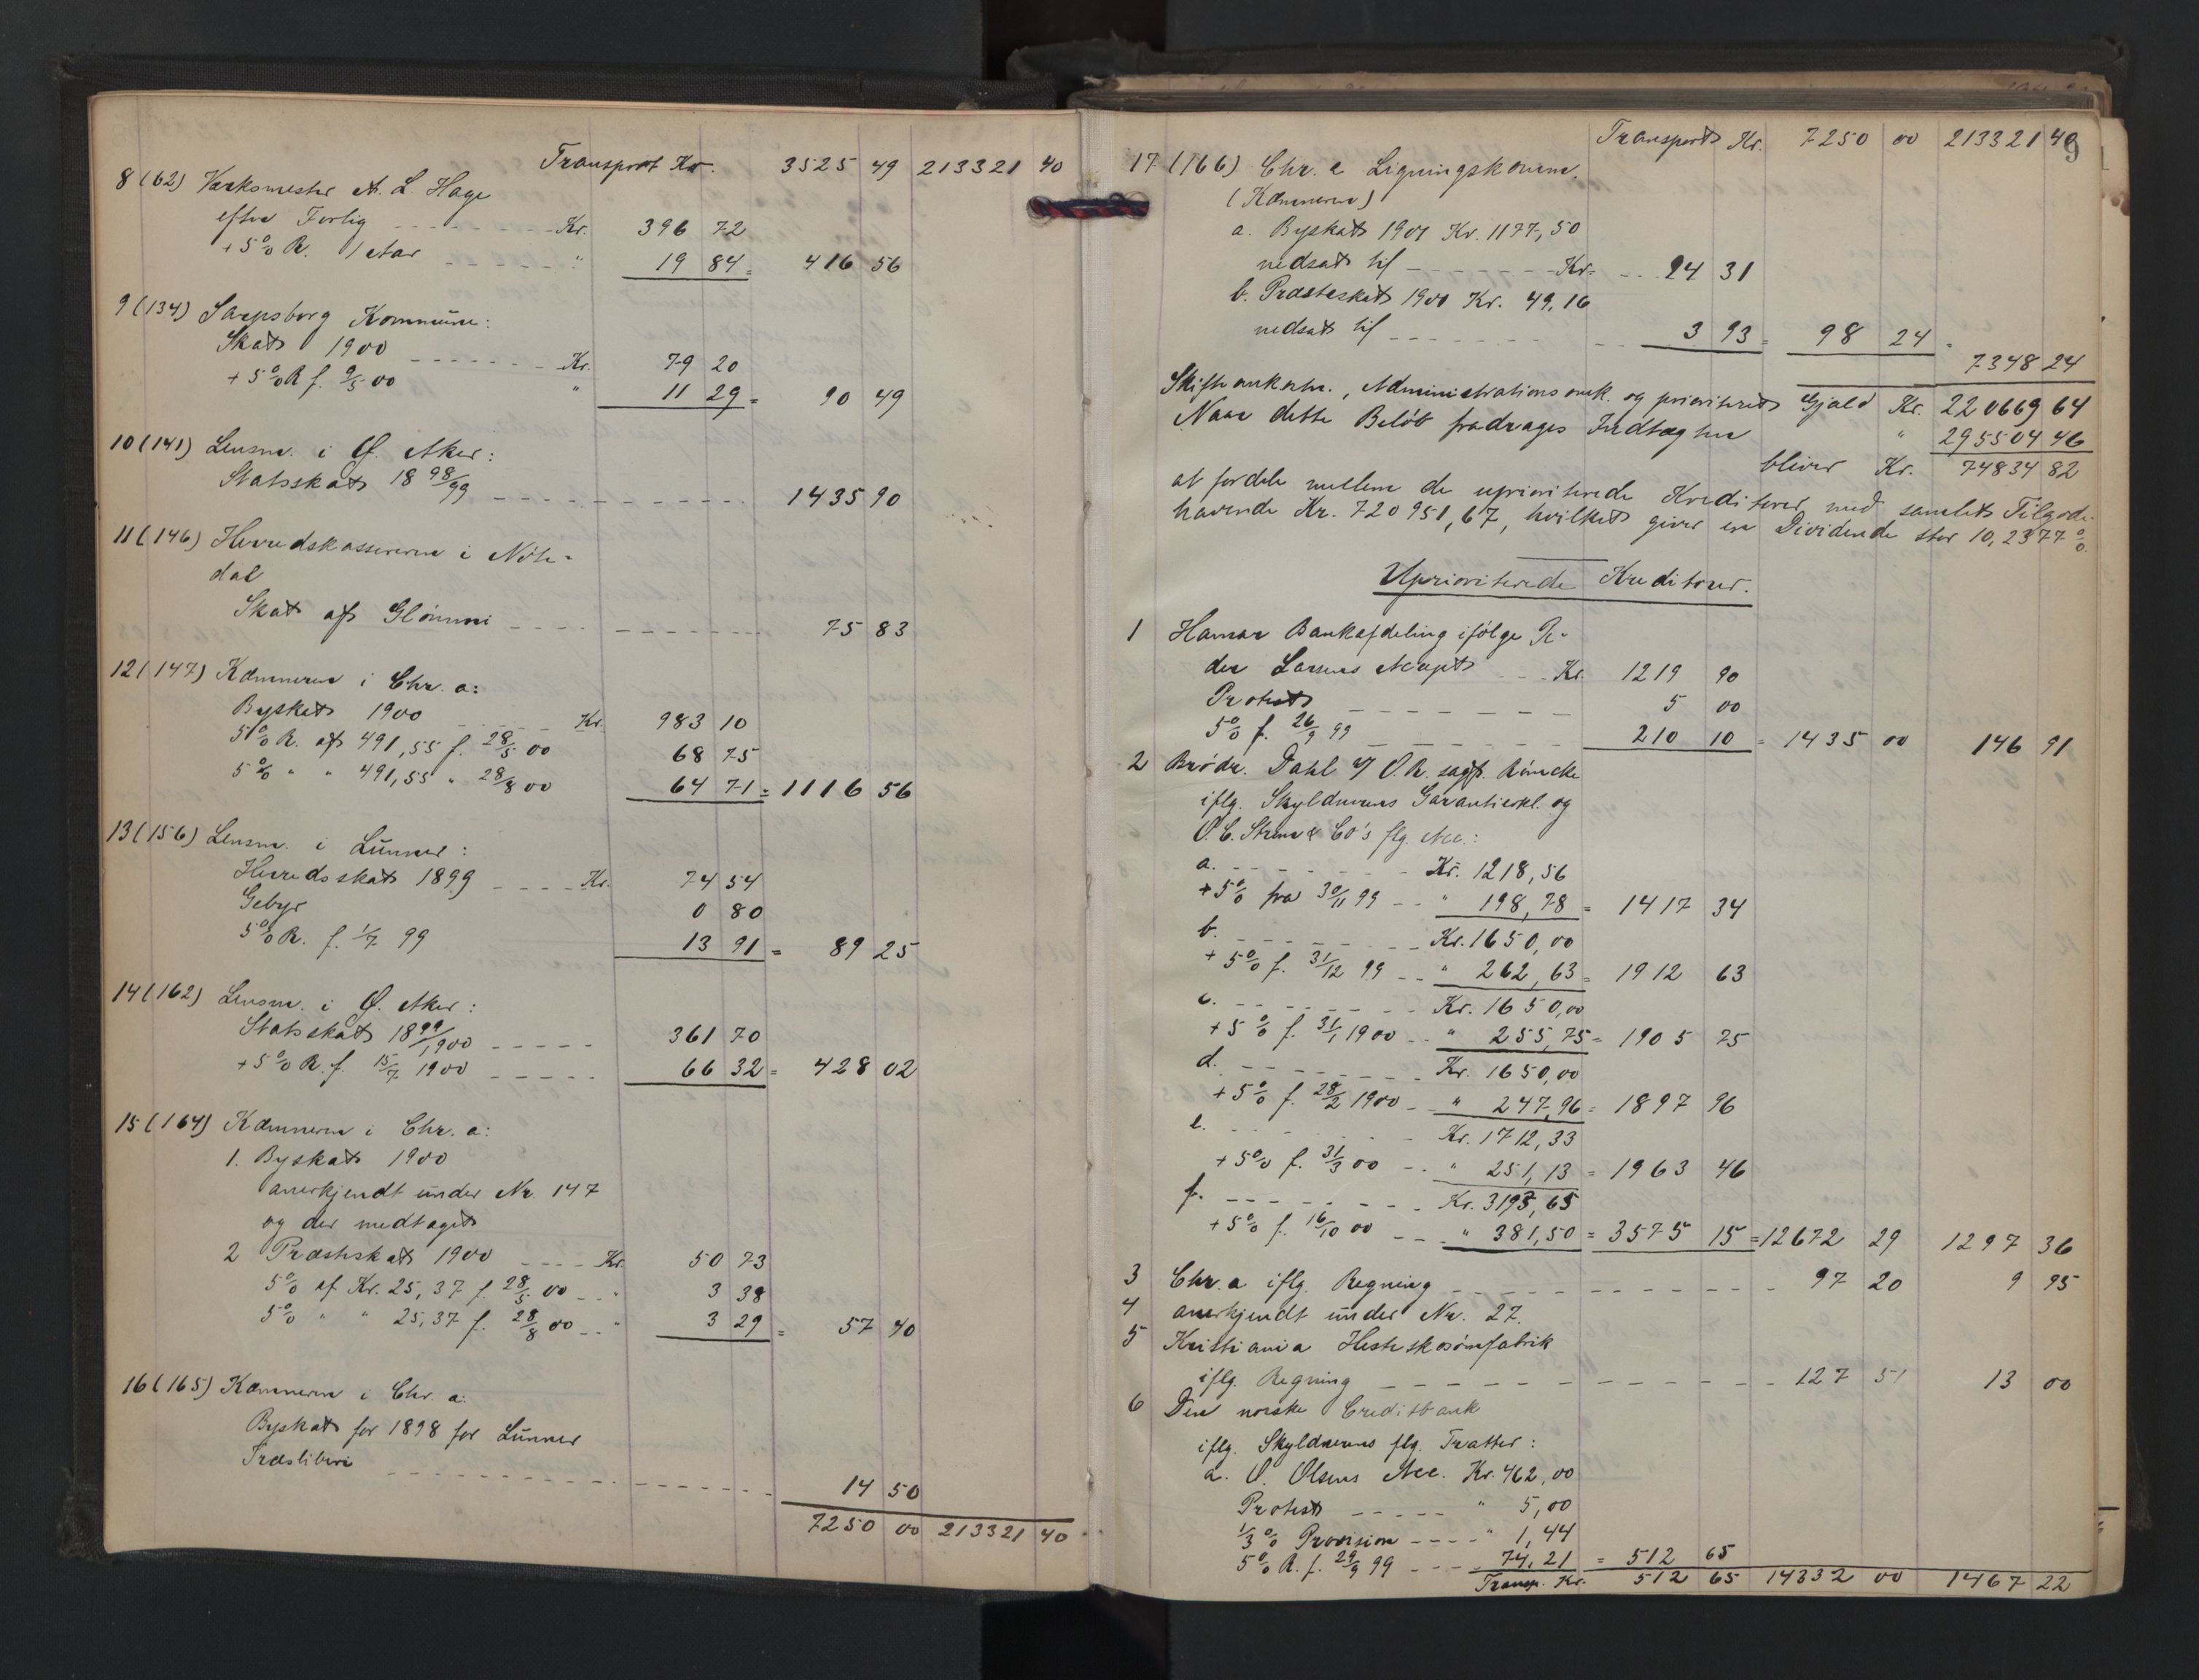 Transport Kr. 3525 49 213321 40
8 (62) Værksmester A. L. Hage
efter Forlig Kr. 396 72
+ 5% R. 1 Aar " 19 84 = 416 56
9 (134) Sarpsborg Kommune:
Skat 1900 Kr. 79 20
+ 5% R f. 9/5 00 " 11 29 = 90 49
10 (141) Lensm. i Ø. Aker:
Statsskat 18 98/99 1435 90
11 (146) Herredskassereren i
dal
Skat af Glømmi 75 83
12 (147) Kæmneren i Chr. a:
Byskat 1900 Kr. 983 10
5% R. af 491,55 f. 28/5 00 68 75
5% " " 491,55 " 28/8 00 64 71 = 1116 56
13 (156) Lensm. i Lunner:
Herredsskat 1899 Kr. 74 54
Gebyr 0 80
5% R. f. 1/7 99 13 91 = 89 25
14 (162) Lensm. i Ø. Aker:
Statsskat 18 99/1900 361 70
+ 5% R. f. 15/7 1900 66 32 = 428 02
15 (164) Kæmneren i Chr. a:
1. Byskat 1900
anerkjendt under Nr. 147
og der medtaget
2 Præsteskat 1900 Kr. 50 73
5% af Kr. 25,37 f. 28/5 00 " 3 38
5% " " 25,37 f. 28/8 00 " 3 29 = 57 40
16 (165) Kæmneren i Chr. a:
Byskat for 1898 for Lunner
Træsliberi 14 50
7250 00 213321 40
9
Transport Kr. 7250 00 213321 40
17 (166) Chr. a Ligningskomm.
(Kæmneren)
a. Byskat 1901 Kr. 1177,50
nedsat til Kr. 94 31
b. Præsteskat 1901 Kr. 49,16
nedsat til 3 93 = 98 24 =
7348 24
Skifteomkostn., Administrationsomk. og prioriteret Gjæld Kr. 220669 64
Naar dette Beløb fradrages Indtægten " 295504 46
bliver Kr. 74834 82
at fordele mellem de uprioriterede Kreditorer med samlet Tilgode-
havende Kr. 720951,67, hvilket giver en Dividende stor 10,2377 %.
Uprioriterede Kreditorer.
1 Hamar Bankafdeling ifølge Pe-
der Larsens Accept Kr. 1219 90
Protest 5 00
5% f. 26/9 99 210 10 = 1435 00 146 91
2 Brødr. Dahl v/ O.R. sagf.
iflg. Skyldnerens Garantierkl. og
O. C. Strøm & Co's flg. Acc.:
a. Kr. 1218,56
+ 5% fra 30/11 99 " 198,78 = 1417 34
b. Kr. 1650,00
+ 5% f. 31/12 99 " 262,63 = 1912 63
c. Kr. 1650,00
+ 5% f. 31/1 1900 " 255,75 = 1905 75
d. Kr. 1650,00
+ 5% f. 28/2 1900 " 247,96 = 1897 96
e. Kr. 1712,33
+ 5% f. 31/3 00 " 251,13 = 1963 46
f. Kr. 3193,65
+ 5% f. 16/10 00 " 381,50 = 3575 15 = 12672 29 1297 36
3 Chr. a iflg. Regning 97 20 9 95
4 anerkjendt under Nr. 27.
5 Kristiania Hesteskosømfabrik
iflg. Regning 127 51 13 00
6 Den norske Creditbank
iflg. Skyldnerens flg. Tratter:
a. O. Olsens Acc. Kr. 462,00
Protest " 5,00
1/3 % Provision " 1,44
5% R. f. 29/9 99 74,21 = 512 65
Transp. Kr. 512 65 14332 00 1467 22